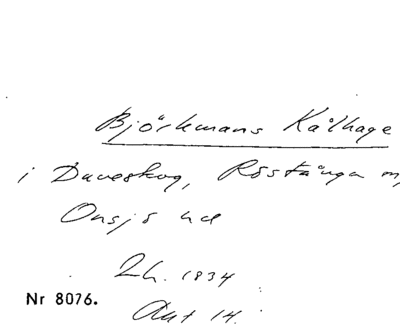 Björkmans Kålhage
i Daveskog, Röstånga
Onsjö hd
Lh. 1834
Nr 8076.
Akt 14.